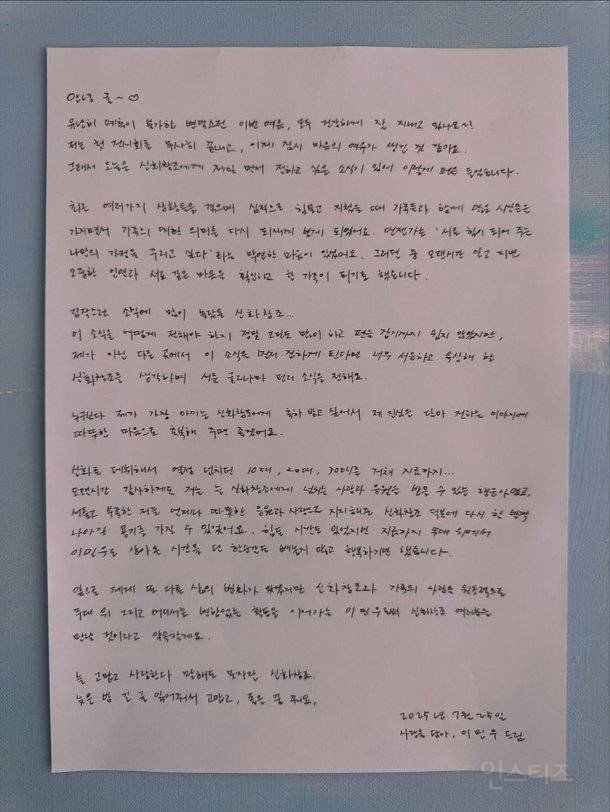 안녕 글~♡
유난히 예측이 불가한 변덕스런 이번 여름, 모두 건강하게 잘 지내고 있나요~?
저는 첫 전시회를 무사히 끝내고, 이제 잠시 마음의 여유가 생긴 것 같아요.
그래서 오늘은 신화창조에게 제일 먼저 전하고 싶은 소식이 있어 이렇게 펜을 들었습니다.
최근 여러가지 상황들을 겪으며 심적으로 힘들고 지쳤을 때 가족들과 함께 많은 시간들을
가지면서 가족의 대한 의미를 다시 되새기게 되었어요. 언젠가는 '서로 힘이 되어 주는
나만의 가정을 꾸리고 싶다' 라는 막연한 마음이 있었어요. 그러던 중 오랜시간 알고 지낸
소중한 인연과 서로 같은 마음을 확인하고 한 가족이 되기로 했습니다.
갑작스런 소식에 많이 놀랐을 신화창조...
이 소식을 어떻게 전해야 할지 정말 고민도 많이 하고 펜을 잡기까지 쉽지 않았지만,
제가 아닌 다른 곳에서 이 소식을 먼저 접하게 된다면 너무 서운하고 속상해 할
신화창조를 생각하며 서둘러 먼저 소식을 전해요.
누구보다 제가 가장 아끼는 신화창조에게 축하 받고 싶어서 제 진심을 담아 전하는 이야기에
따뜻한 마음으로 축복해 주면 좋겠어요.
신화로 데뷔해서 열정 넘치던 10대, 20대, 30대를 거쳐 지금까지...
오랜시간 감사하게도 저는 늘 신화창조에게 넘치는 사랑과 응원을 받을 수 있는 행운아였고,
서툴고 부족한 저를 언제나 따뜻한 응원과 사랑으로 지지해준 신화창조 덕분에 다시 한 번
나아갈 용기를 가질 수 있었어요. 힘든 시간도 있었지만 지금까지 무대 위에서
이민우로 살아온 시간을 단 한순간도 빼놓지 않고 행복하기만 했습니다.
앞으로 제게 또 다른 삶의 변화가 생겼지만 신화창조와 가족의 사랑을 원동력으로
무대 위 그리고 어디서든 변함없는 활동을 이어가는 이민우 신화창조 여러분을
만날 것이라고 약속할게요.
늘 고맙고 사랑한다 말해도 모자란 신화창조.
늦은 밤 긴 글 읽어줘서 고맙고, 좋은 꿈 꿔요.
2025년 7월 25일
사랑을 담아, 이민우 드림
인스티즈